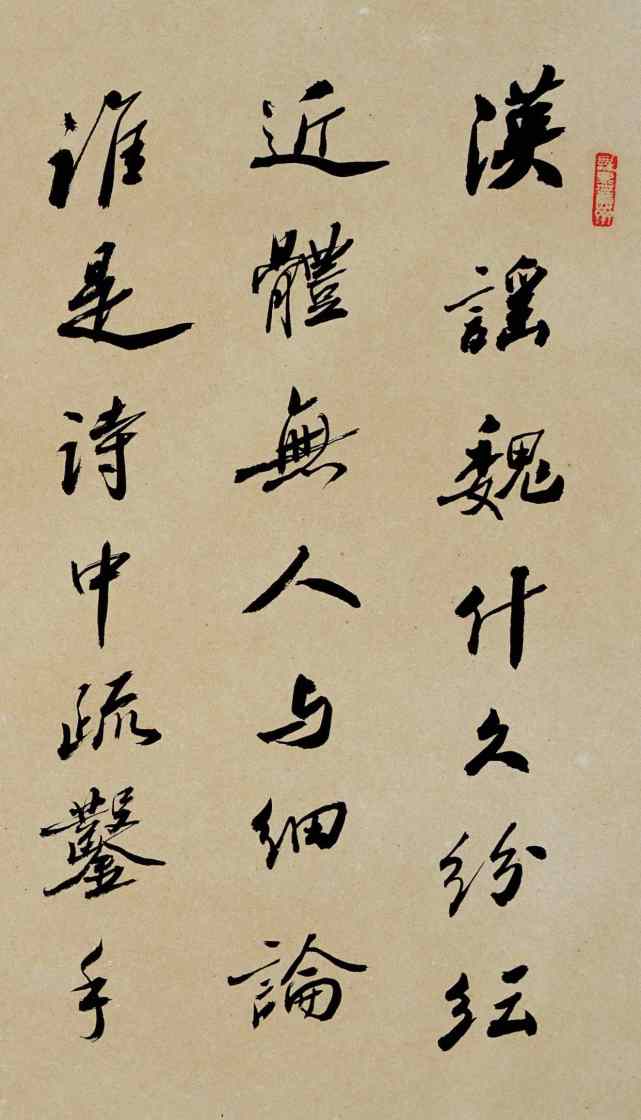 漢謠魏什久紛紜
近體無人与細論
誰是詩中疏鑿手